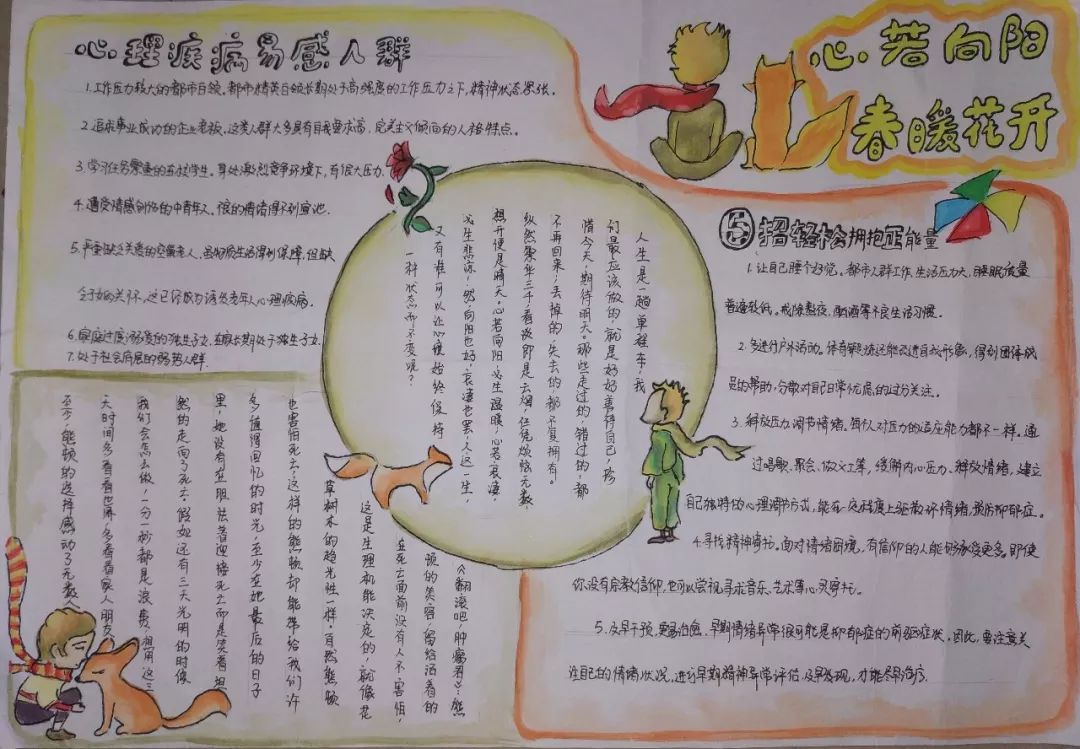 心若向阳
春暖花开
心理疾病易感人群
1.工作压力较大的都市白领。都市精英白领长期处于高强度的工作压力之下,精神状态紧张。
2.追求事业成功的企业老板。这类人群大多具有自我要求高,完美主义倾向的人格特点。
3.学习任务繁重的在校学生。身处激烈竞争环境下,有很大压力.
4.遭受情感创伤的中青年人,很的情绪得不到宣泄.
5.严重缺乏关爱的空巢老人,虽物质生活得到保障,但缺
乏子女的关怀,这已经成为诱发老年人心理疾病.
6.家庭过度溺爱的独生子女,在家长期处于独生子女.
7.处于社会底层的弱势人群.
人生是一趟单程车,我
们最应该做的,就是好好善待自己,珍
惜今天,期待明天。那些走过的,错过的,都
不再回来,丢掉的,失去的都不复拥有。
纵然繁华三千,看淡即是云烟,任凭烦恼无数
想开便是晴天。心若向阳,必生温暖,心若哀凄,
必生悲凉,然,向阳也好,哀凄也罢,人这一生,
又有谁可以让心境始终保持
一种状态而不变呢?
5招轻松拥抱正能量
1.让自己睡个好觉。都市人群工作、生活压力大,睡眠质量
普遍较低。戒除熬夜、酗酒等不良生活习惯。
2.多进行户外活动。体育锻炼还能改进自我形象,得到团体成
员的帮助,分散对自己日常忧虑的过分关注。
3.释放压力,调节情绪。每个人对压力的适应能力都不一样。通
过唱歌、聚会、做义工等,缓解内心压力、释放情绪,建立
自己独特的心理调节方式,能在一定程度上驱散坏情绪,预防抑郁症。
4.寻找精神寄托。面对情绪困境,有信仰的人能够承受更多。即使
你没有宗教信仰,也可以尝试寻求音乐、艺术等心灵寄托。
5.及早干预,更易治愈.早期情绪异常很可能是抑郁症的前驱症状。因此,要注意关
注自己的情绪状况,进行早期精神异常评估,及早发现,才能尽早治疗.
《翻滚吧,肿瘤君》:熊
顿的美容,留给活着的
在死亡面前没有人不害怕,
这是生理机能决定的,就像花
草树木的趋光性一样。自然熊顿
也害怕死亡,这样的熊顿却能带给我们许
多值得回忆的时光,至少在她最后的日子
里,她没有在眼怯着迎接死亡而是笑着坦
然的走向了死亡,假如还有三天光明的时候
我们会怎么做,一分一秒都是浪费,想用这三
天时间多看看世界,多看看家人朋友
至少,熊顿的选择感动了无数人